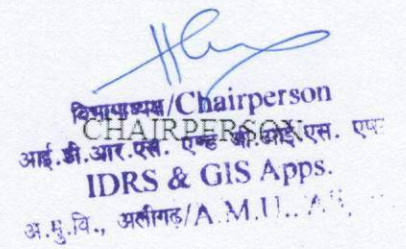 विभागाध्यक्ष/Chairperson
CHAIRPERSON
आई.डी.आर.एस. एण्ड जी.आई.एस. एप
IDRS & GIS Apps.
अ.मु.वि., अलीगढ़/A.M.U.,